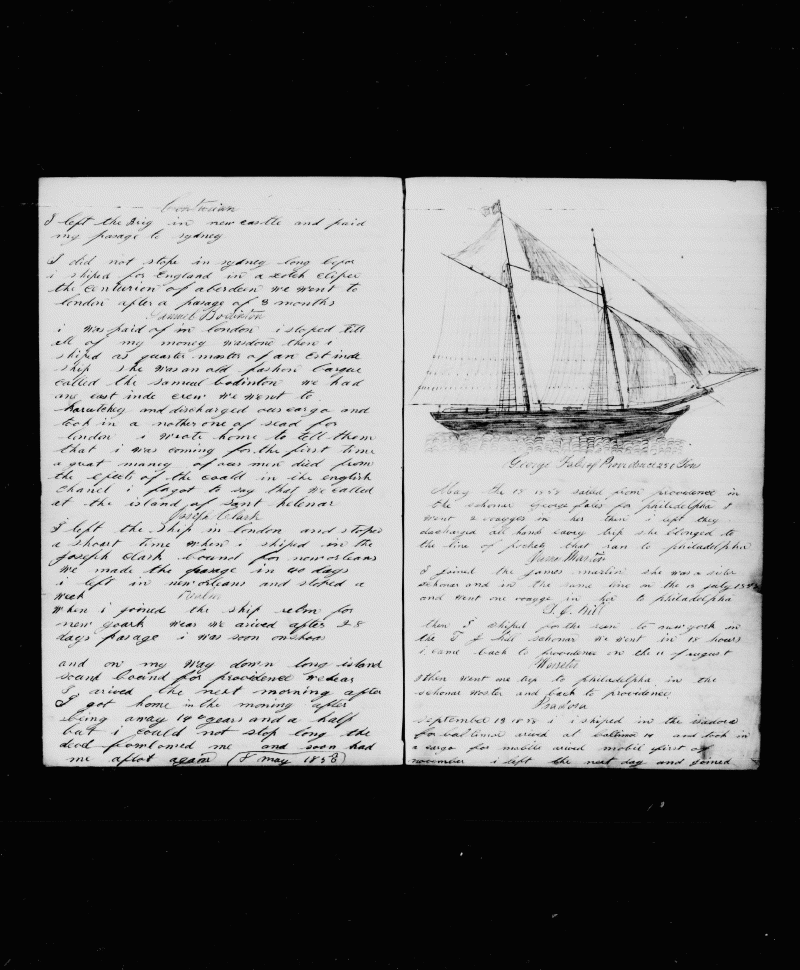 Centurian
I left the Brig in new castle and paid
my pasage to sydney
I did not stope in sydney long befor
i shiped for England in a scotch cliper
the Centurion of aberdeen we went to
london after a pasage of 3 months
Samuel Bodinton
i was paid of in london i stoped till
all of my money was done then i
shiped as quarter master of an Est inde
ship she was an old fashon barque
called the samuel bodinton we had
an east inde crew we went to
and discharged our cargo and
took in a nother one of sead for
london i wrote home to tell them
that i was coming for the first time
a great maney of our men died from
the efects of the coald in the english
chanel i forgot to say that we called
at the island of sant helenar
Joseph Clark
I left the ship in london and stoped
a shoart time when i shiped in the
Joseph Clark bound for new orleans
we made the pasage in 40 days
i left in new orleans and stoped a
week Realm
When i joined the ship relm for
new yoark wear we arived after 28
days pasage i was soon onshoar
and on my way down long island
sound bound for providence wear
I arived the next morning after
I got home in the morning after
being away 14 years and a half
but i could not stop long the
me and soon had
me aflot again (8 may 1858)
George Fales of Providence 251 Tons
May the 18 1858 sailed from providence in
the schonar George fales for philadelpha I
went 2 voayges in her then i left they
discharged all hands every trip she blonged to
the line of packets that ran to philadelpha
James Martin
I joined the james martin she was a sister
schonar and in the same line on the july 1858
and went one voayge in her to philadelpha
T. J. Hill
then I shiped for the run to new york in
the T J Hill schonar we went in 18 hours
i came back to providence on the 11 of august
Worster
then went one trip to philadelpha in the
schonar Woster and back to providence
Isadora
September 13 1858 i shiped in the isadora
for baltimor arived at baltimor and took in
a cargo for mobile arived mobil first of
november i left the next day and joined